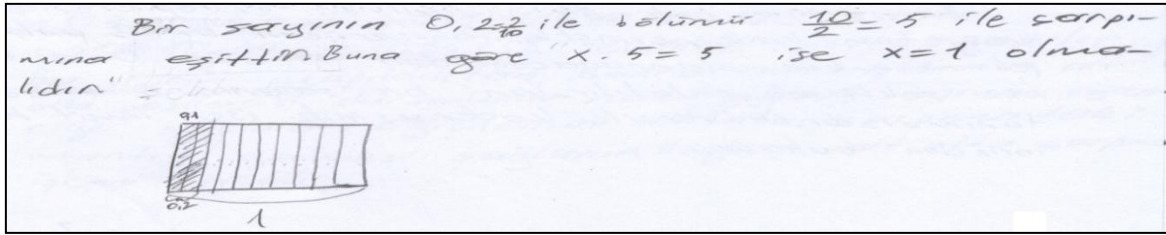 Bir sayının 0,2=2/10 ile bölümü 10/2 = 5 ile çarpı-
mına eşittir. Buna göre x . 5 = 5 ise x = 1 olma-
lıdır =
0,1
0,2
1